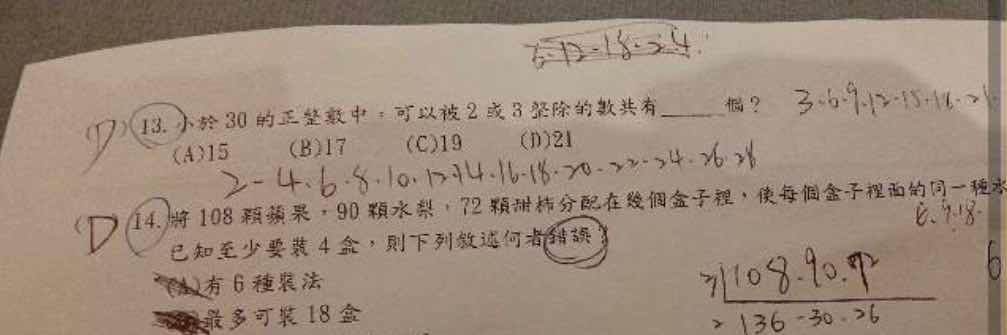 6-12-18-24
(D) 13. 小於 30 的正整數中，可以被 2 或 3 整除的數共有____個？ 3.6.9.12.15.18.21
(A)15 (B)17 (C)19 (D)21
2-4.6.8.10.12.14.16.18.20.22-24.26.28
(D) 14. 將 108 顆蘋果，90 顆水梨，72 顆甜柿分配在幾個盒子裡，使每個盒子裡面的同一種水
6.9.18.
已知至少要裝 4 盒，則下列敘述何者錯誤？
(A)有 6 種裝法
108.90.72
最多可裝 18 盒
136-30.26
6